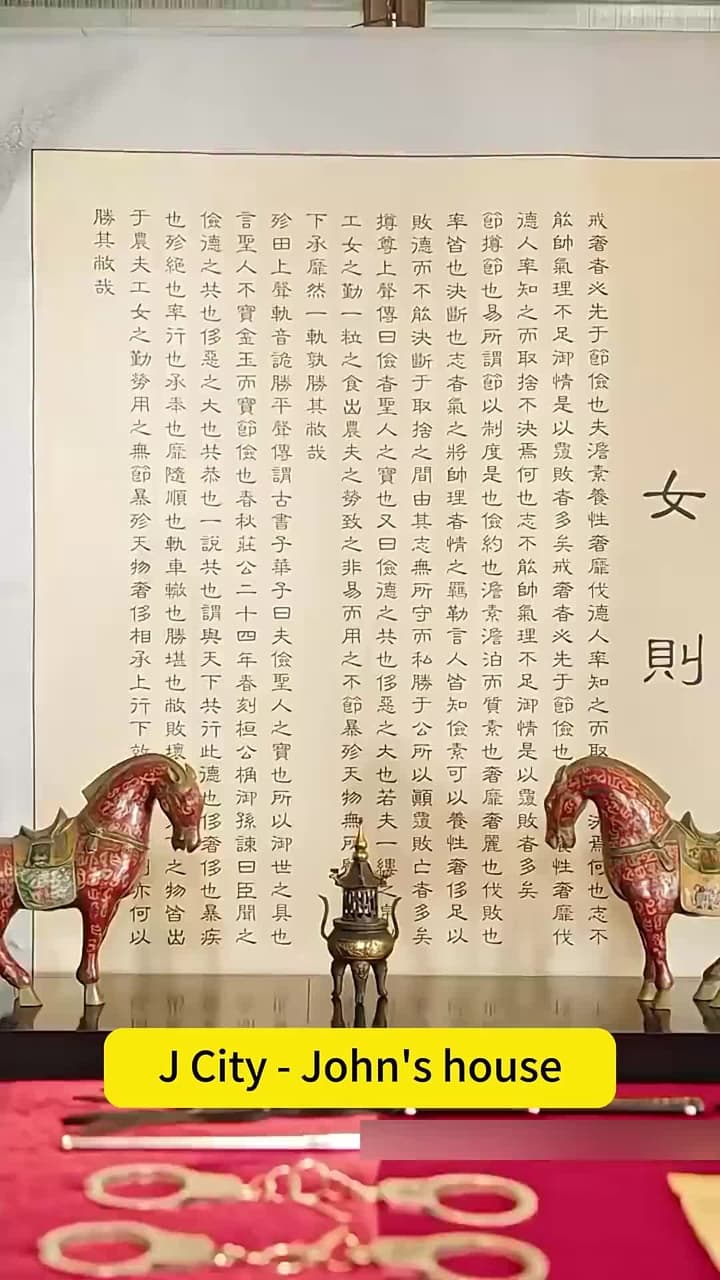 女則
戒奢者必先于節儉也夫澹素養性奢靡伐德人率知之而取決焉何也志不
能帥氣理不足御情是以覆敗者多矣戒奢者必先于節儉也養性奢靡伐
德人率知之而取捨不決焉何也志不能帥氣理不足御情是以覆敗者多矣
節撙節也易所謂節以制度是也儉約也澹素澹泊而質素也奢靡奢麗也伐敗也
率皆也決斷也志者氣之將帥理者情之羈勒言人皆知儉素可以養性奢侈足以
敗德而不能決斷于取捨之間由其志無所守而私勝于公所以顚覆敗亡者多矣
撙尊上聲傳曰儉者聖人之寶也又曰儉德之共也侈惡之大也若夫一縷之帛
工女之勤一粒之食出農夫之勞致之非易而用之不節暴殄天物無所
下承靡然一軌孰勝其敝哉
殄田上聲軌音詭勝平聲傳謂古書子華子曰夫儉聖人之寶也所以御世之具也
言聖人不寶金玉而寶節儉也春秋莊公二十四年春刻桓公桷御孫諫曰臣聞之
儉德之共也侈惡之大也共恭也一說共也謂與天下共行此德也侈奢侈也暴疾
也殄絕也率行也承奉也靡隨順也軌車轍也勝堪也敝敗壞之物皆出
于農夫工女之勤勞用之無節暴殄天物奢侈相承上行下效亦何以
勝其敝哉
J City - John's house